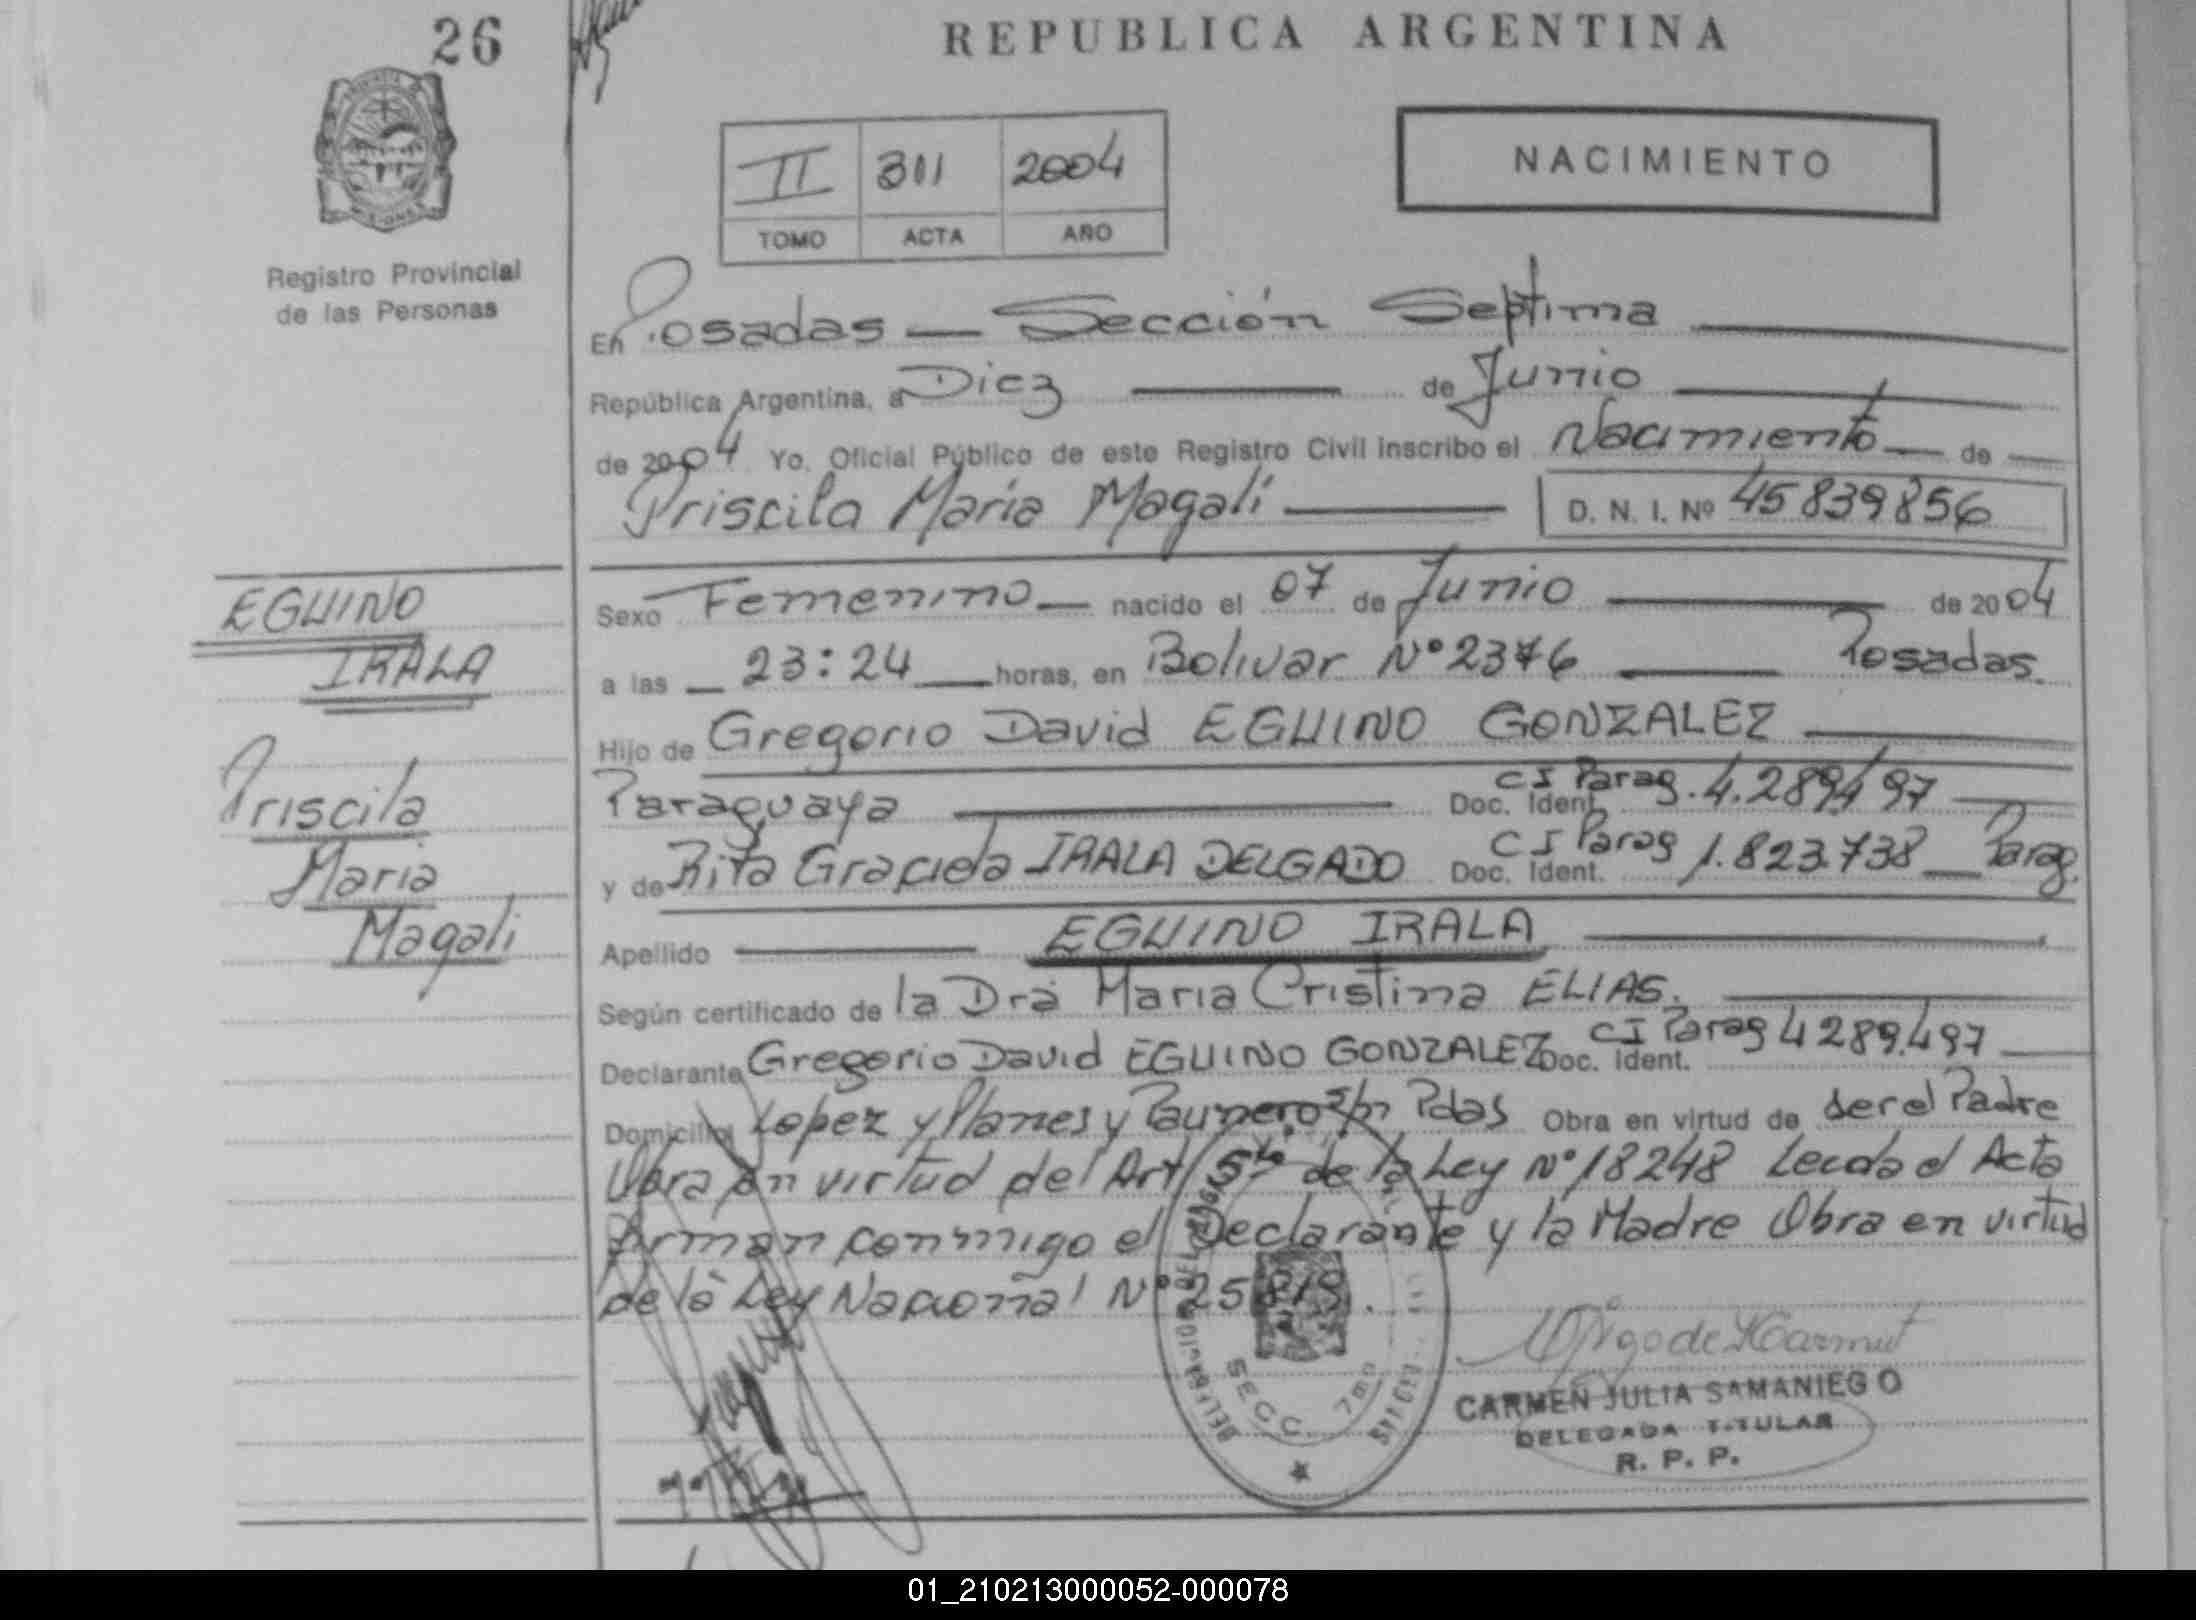 26
REPUBLICA ARGENTINA
II 311 2004
TOMO ACTA AÑO
NACIMIENTO
Registro Provincial
de las Personas
En Posadas — Sección Septima
República Argentina, a Diez de Junio
de 2004 Yo, Oficial Público de este Registro Civil inscribo el Nacimiento de
Priscila Maria Magali D. N. I. Nº 45839856
EGUINO
IRALA
Priscila
Maria
Magali
Sexo Femenino nacido el 07 de Junio de 2004
a las 23:24 horas, en Bolivar Nº 2376 Posadas.
Hijo de Gregorio David EGUINO GONZALEZ
Paraguaya Doc. Ident. CI Parag. 4.289.497
y de Rita Graciela IRALA DELGADO Doc. Ident. CI Parag 1.823.738 Parag.
Apellido EGUINO IRALA
Según certificado de la Dra Maria Cristina ELIAS.
Declarante Gregorio David EGUINO GONZALEZ Doc. Ident. CI Parag 4289.497
Domicilio Lopez y Planes y Paunero s/n Pdas Obra en virtud de ser el Padre
Obra en virtud del Art 5to de la Ley Nº 18248 Leida el Acta
Firman conmigo el Declarante y la Madre Obra en virtud
de la Ley Nacional Nº 25819.
SECC. 7ma
CARMEN JULIA SAMANIEGO
DELEGADA TITULAR
R. P. P.
01_210213000052-000078